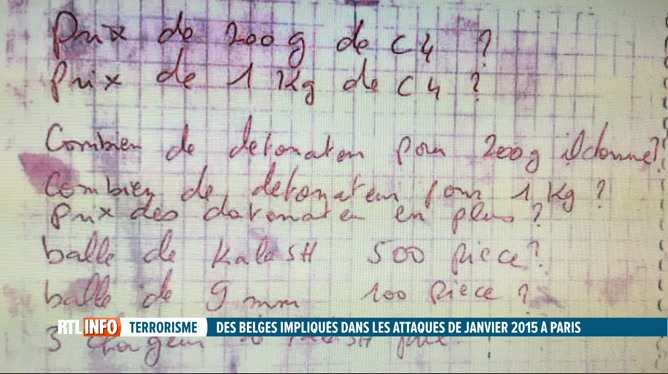 Prix de 200 g de C4 ?
Prix de 1 Kg de C4 ?
Combien de detonateur pour 200g il donne?
Combien de detonateur pour 1 Kg ?
Prix des datonateu en plus ?
balle de KalaSH 500 piece?
balle de 9 mm 100 piece ?
RTL INFO TERRORISME DES BELGES IMPLIQUÉS DANS LES ATTAQUES DE JANVIER 2015 À PARIS
3